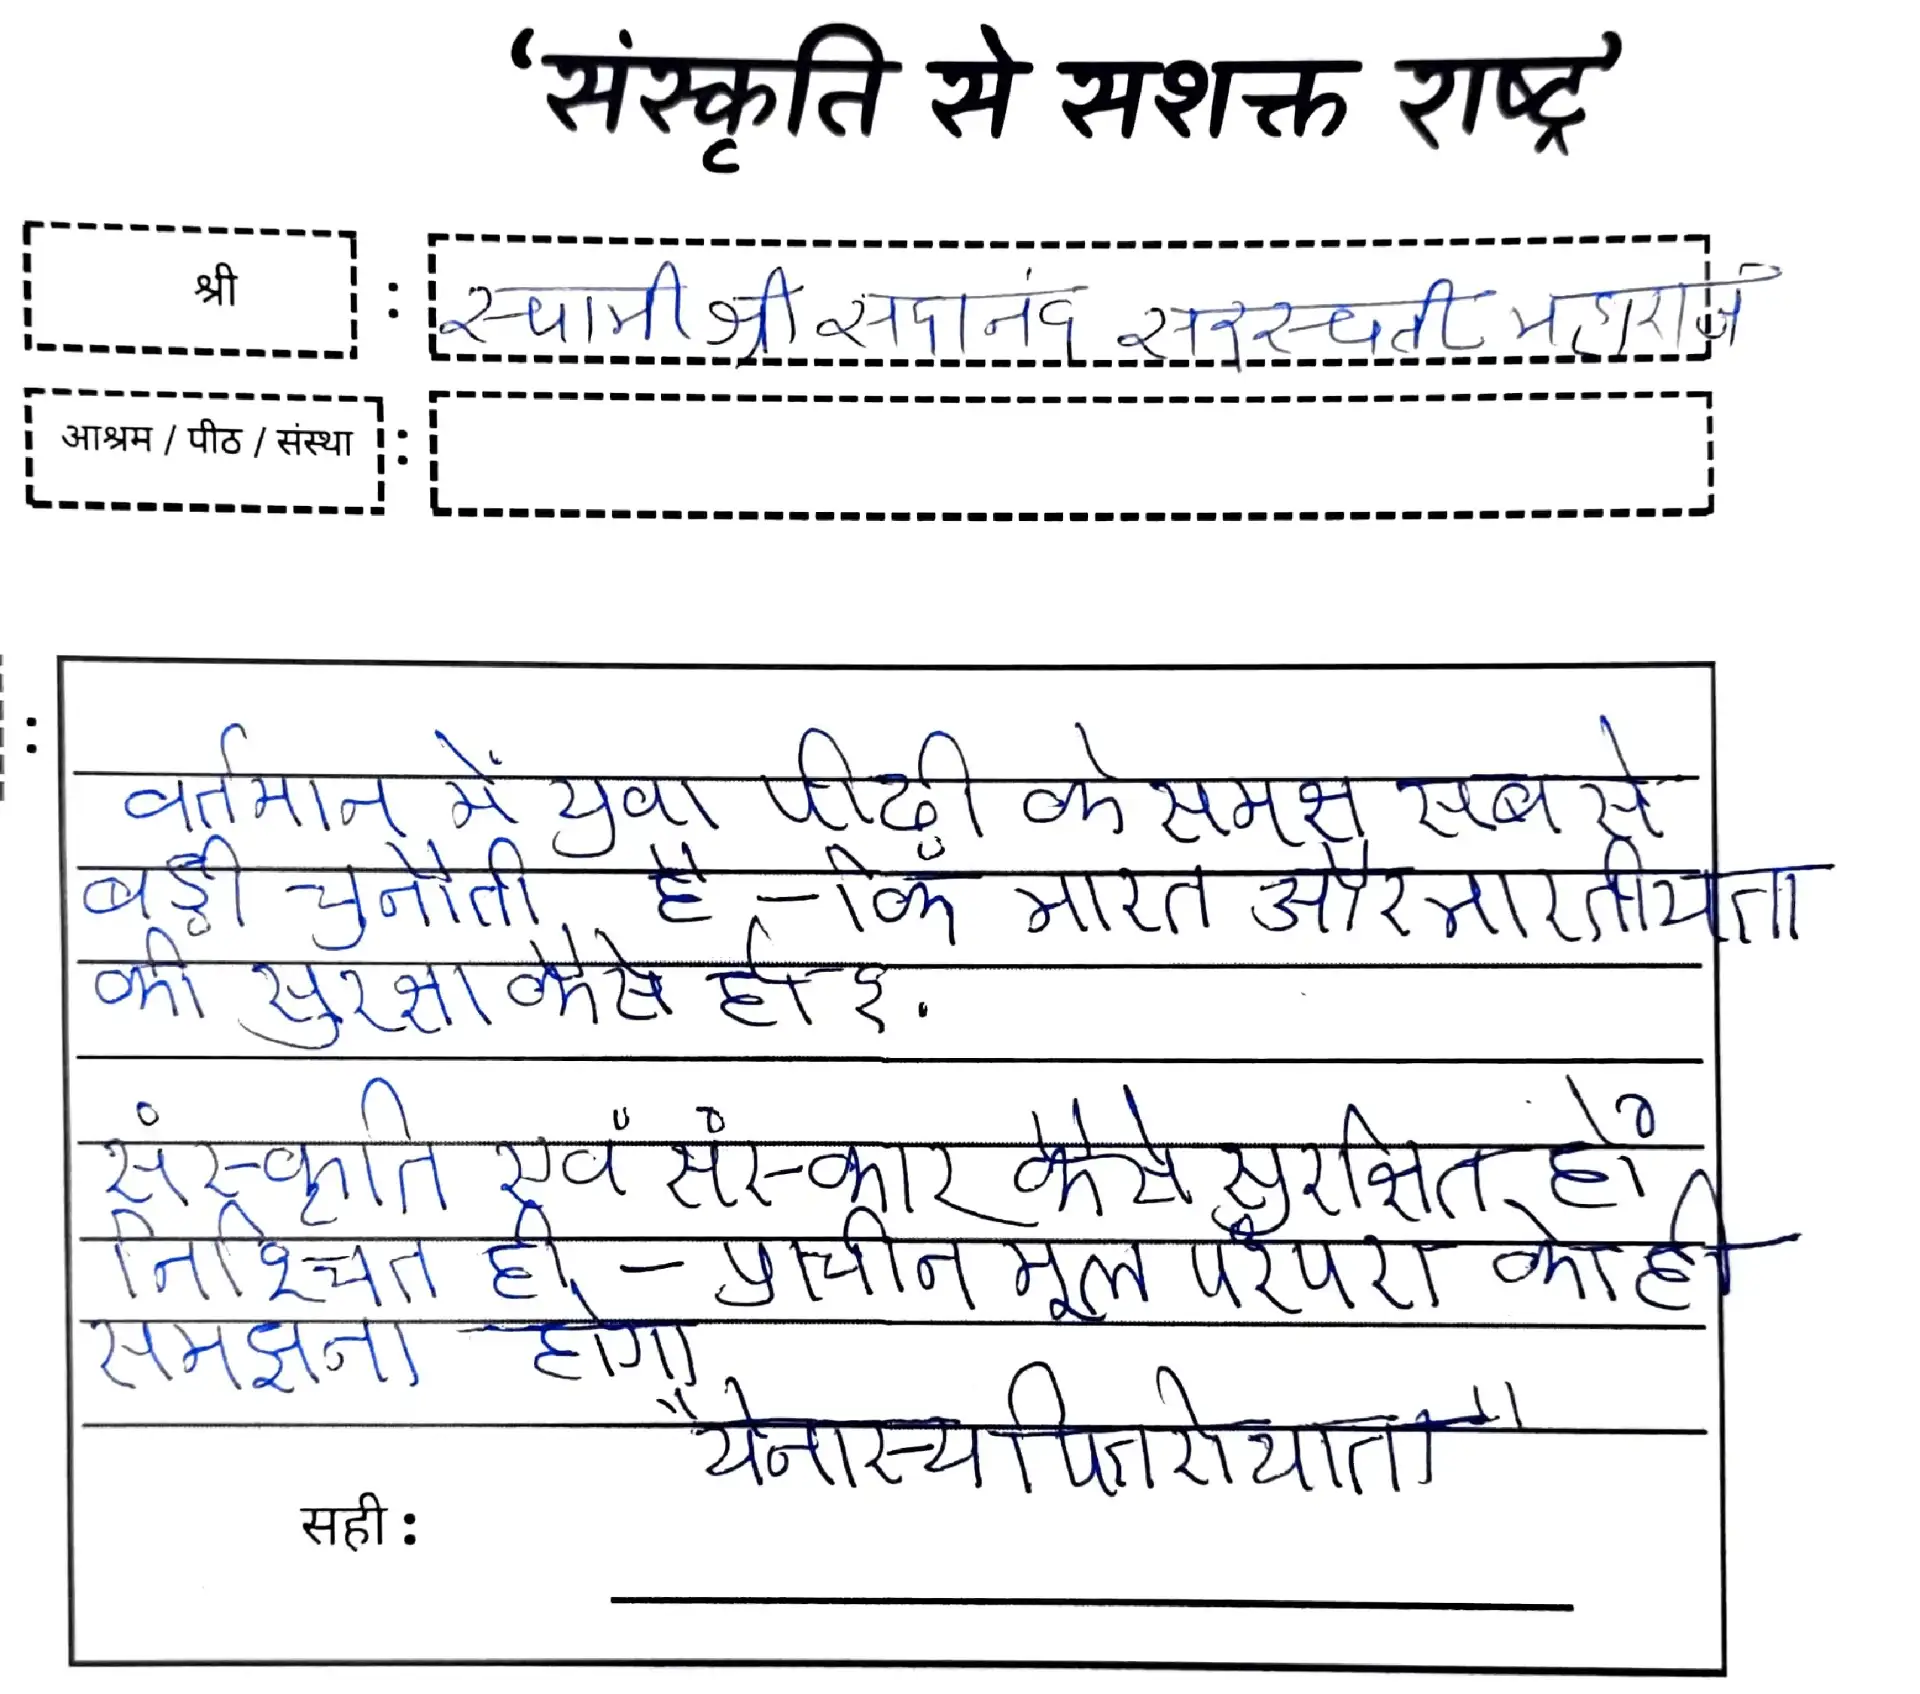 ‘संस्कृति से सशक्त राष्ट्र’
श्री : स्वामी श्री सदानंद सरस्वती महाराज
आश्रम / पीठ / संस्था :
:
वर्तमान में युवा पीढ़ी के समक्ष सबसे
बड़ी चुनौती है - कि भारत और भारतीयता
की सुरक्षा कैसे हो ?
संस्कृति एवं संस्कार कैसे सुरक्षित हों
निश्चित ही - प्राचीन मूल परंपरा को ही
समझना होगा
"येनास्य पितरो याता"
सही :